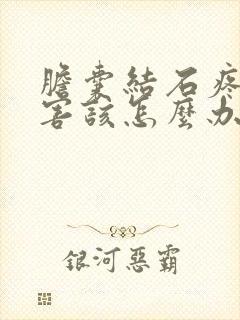 膽囊結石疼
害該怎麼办
銀河惡霸